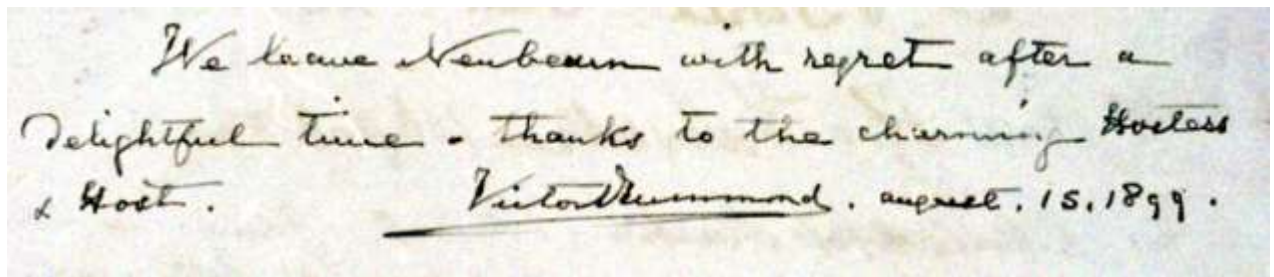 We leave Neubeurn with regret after a
delightful time - thanks to the charming Hostess
& Host. Victor Drummond. august. 15. 1899.